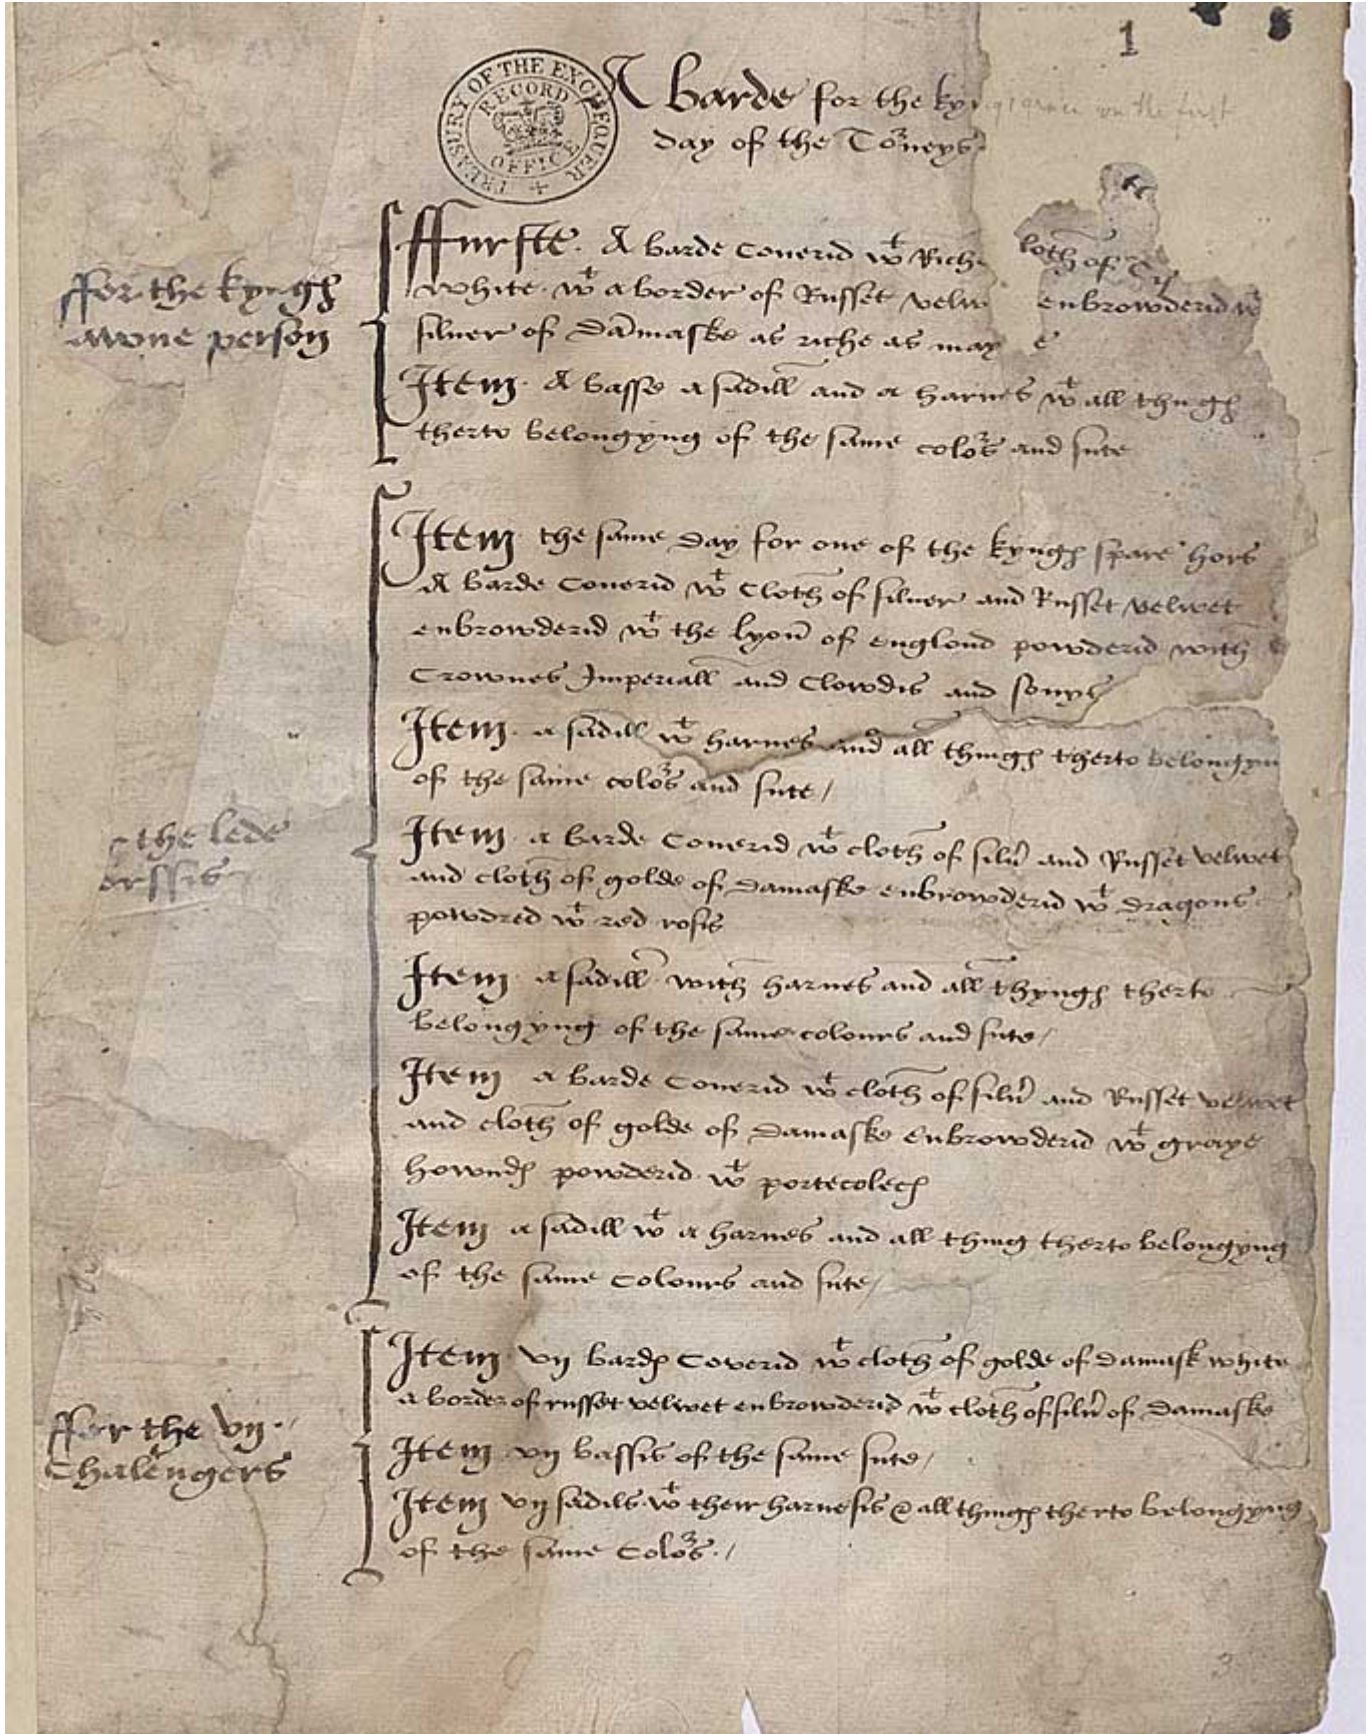 1
TREASURY OF THE EXCHEQUER
RECORD OFFICE
A barde for the kyngs grace on the first
day of the Torneys
ffurste. A barde Couerid wt Riche loth of
white. wt a border of Russet velw enbrowderid w
siluer of Damaske as riche as may e
for the kyngs
awne person
Item. A basse a sadill and a harnes wt all thngs
therto belongyng of the same colors and sute
Item the same day for one of the kyngs spare hors
A barde Couerid wt Cloth of siluer and Russet velwet
enbrowderid wt the lyon of englond powderid with
Crownes Imperiall and Clowdis and sonys
Item. a sadill wt harnes and all things therto belongyn
of the same colors and sute /
the lede
orssis
Item. a barde Couerid wt cloth of silu and Russet velwet
and cloth of golde of Damaske enbrowderid wt dragons
powdred wt red rosis
Item. a sadill with harnes and all thyngs therto
belongyng of the same colours and sute /
Item a barde Couerid wt cloth of silu and Russet velwet
and cloth of golde of Damaske enbrowderid wt graye
hownds powderid wt portecoleis
Item a sadill wt a harnes and all thing therto belongyng
of the same Colours and sute /
Item vij bards Coverid wt cloth of golde of damask white
a border of russet velwet enbrowderid wt cloth of silu of damaske
for the vij.
Chalengers
Item vij bassis of the same sute /
Item vij sadils wt their harnesis & all things therto belongyng
of the same Colors. /
3